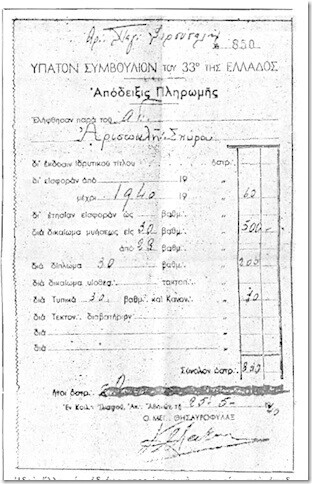 № 850
ΥΠΑΤΟΝ ΣΥΜΒΟΥΛΙΟΝ ΤΟΥ 33° ΤΗΣ ΕΛΛΑΔΟΣ
Ἀπόδειξις Πληρωμῆς
Ἐλήφθησαν παρὰ τοῦ ἀδ.
Σπύρου
δι' ἔκδοσιν ἱδρυτικοῦ τίτλου δατρ.
δι' εἰσφορὰν ἀπὸ 19 "
μέχρι 1940 19 " 60
δι' ἐτησίαν εἰσφορὰν ὡς βαθμ. "
διὰ δικαίωμα μυήσεως εἰς 30 βαθμ. " 500
ἀπὸ βαθμ. "
διὰ δίπλωμα 30 βαθμ. " 200
διὰ δικαίωμα υἱοθεσ. τακτοπ. "
διὰ Τυπικὰ 30 βαθμ. καὶ Κανον. " 70
διὰ Τεκτον. διαβατήριον "
διὰ "
διὰ "
Σύνολον δατρ.
ἤτοι δατρ.
Ἐν Κοιλ. Ἐλαφοῦ, Ἀν. Ἀθηνῶν τῇ 25-5-
Ο ΜΕΓ. ΘΗΣΑΥΡΟΦΥΛΑΞ